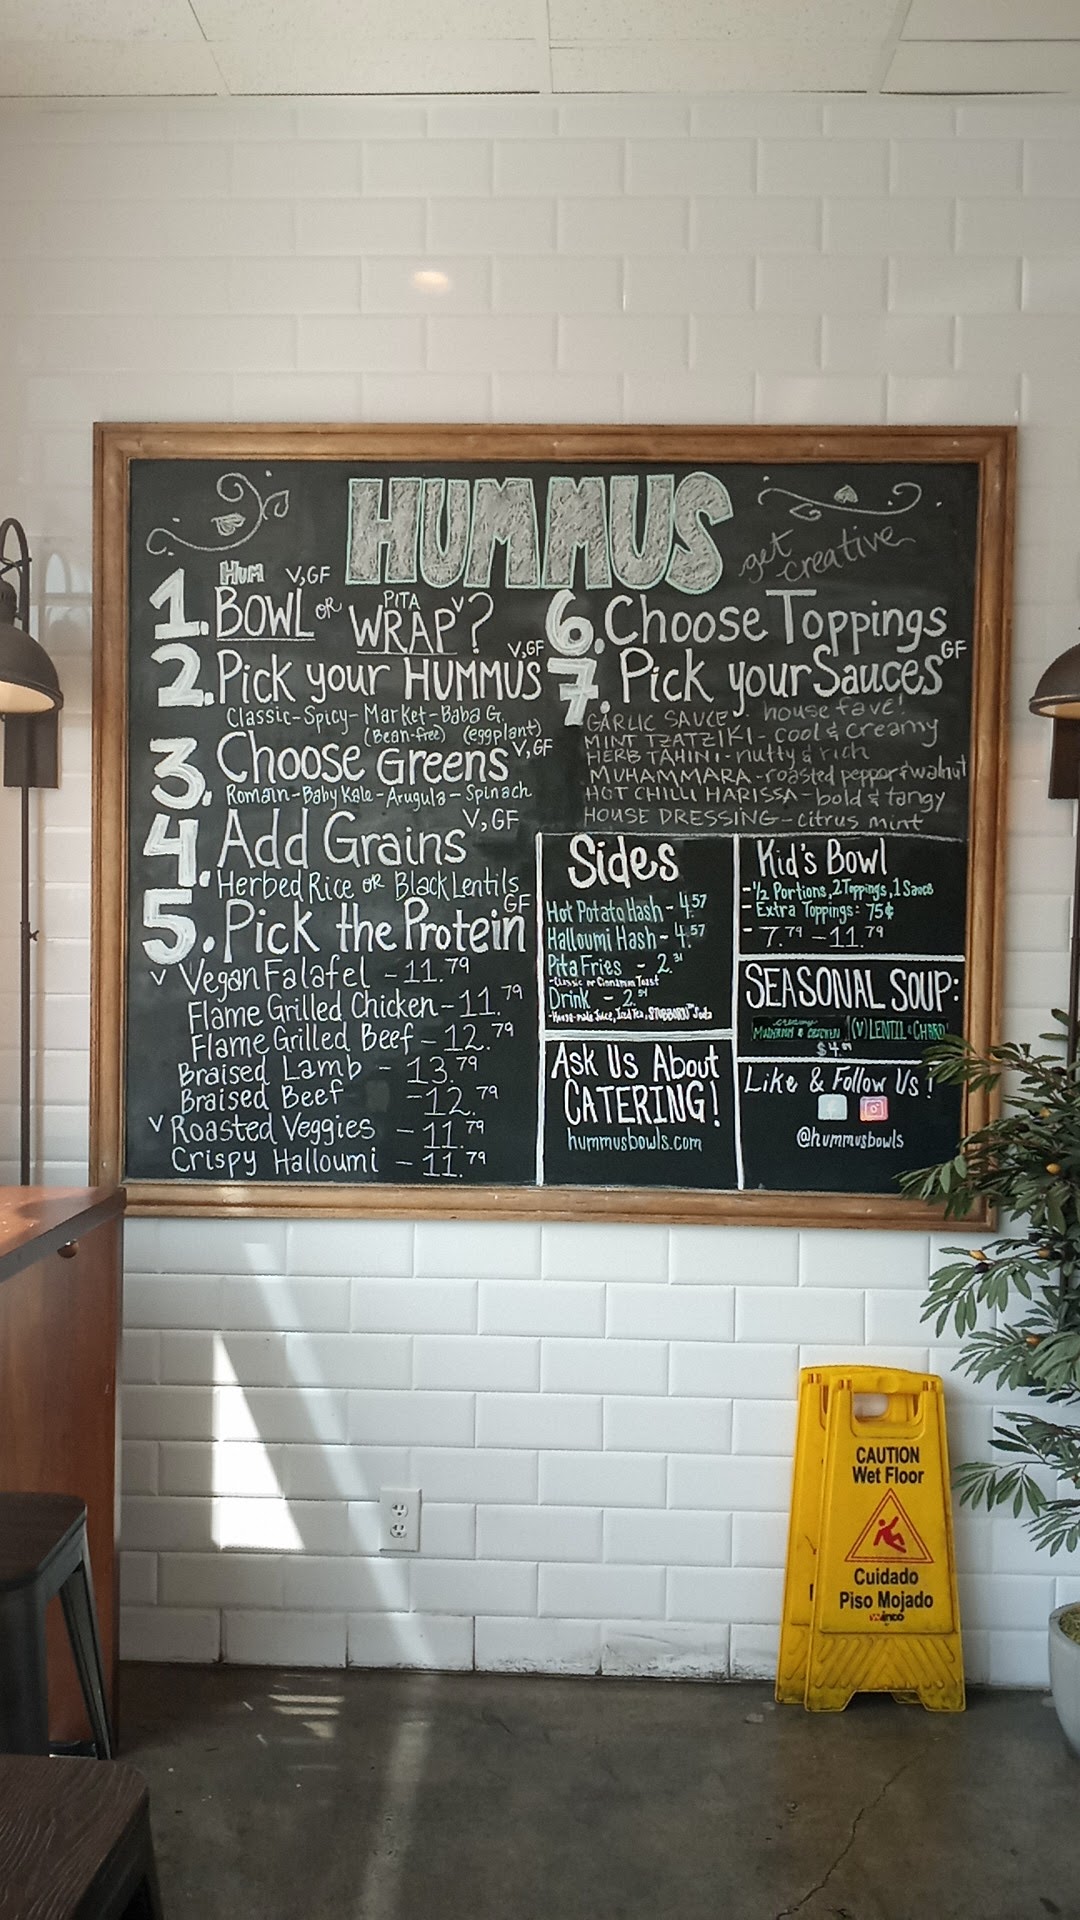 HUMMUS
get creative
1. Hum BOWL V,GF or PITA WRAP V?
2. Pick your HUMMUS V,GF
Classic-Spicy-Market-Baba G.
(Bean-free) (eggplant)
3. Choose Greens V,GF
Romain-Baby Kale-Arugula-Spinach
4. Add Grains V,GF
Herbed Rice or Black Lentils
5. Pick the Protein GF
V Vegan Falafel - 11.79
Flame Grilled Chicken - 11.79
Flame Grilled Beef - 12.79
Braised Lamb - 13.79
Braised Beef - 12.79
V Roasted Veggies - 11.79
Crispy Halloumi - 11.79
6. Choose Toppings
7. Pick your Sauces GF
GARLIC SAUCE: house fave!
MINT TZATZIKI- cool & creamy
HERB TAHINI-nutty & rich
MUHAMMARA-roasted pepper & walnut
HOT CHILLI HARISSA-bold & tangy
HOUSE DRESSING-citrus mint
Sides
Hot Potato Hash - 4.57
Halloumi Hash - 4.57
Pita Fries - 2.31
-Classic or Cinnamon Toast
Drink - 2.54
-House-made Juice, Iced Tea, STUBBORN Soda
Ask Us About
CATERING!
hummusbowls.com
Kid's Bowl
-1/2 Portions, 2 Toppings, 1 Sauce
-Extra Toppings: 75¢
-7.79 - 11.79
SEASONAL SOUP:
creamy
MUSHROOM & CHICKEN (V) LENTIL & CHARD
Like & Follow Us!
@hummusbowls
CAUTION
Wet Floor
Cuidado
Piso Mojado
winco